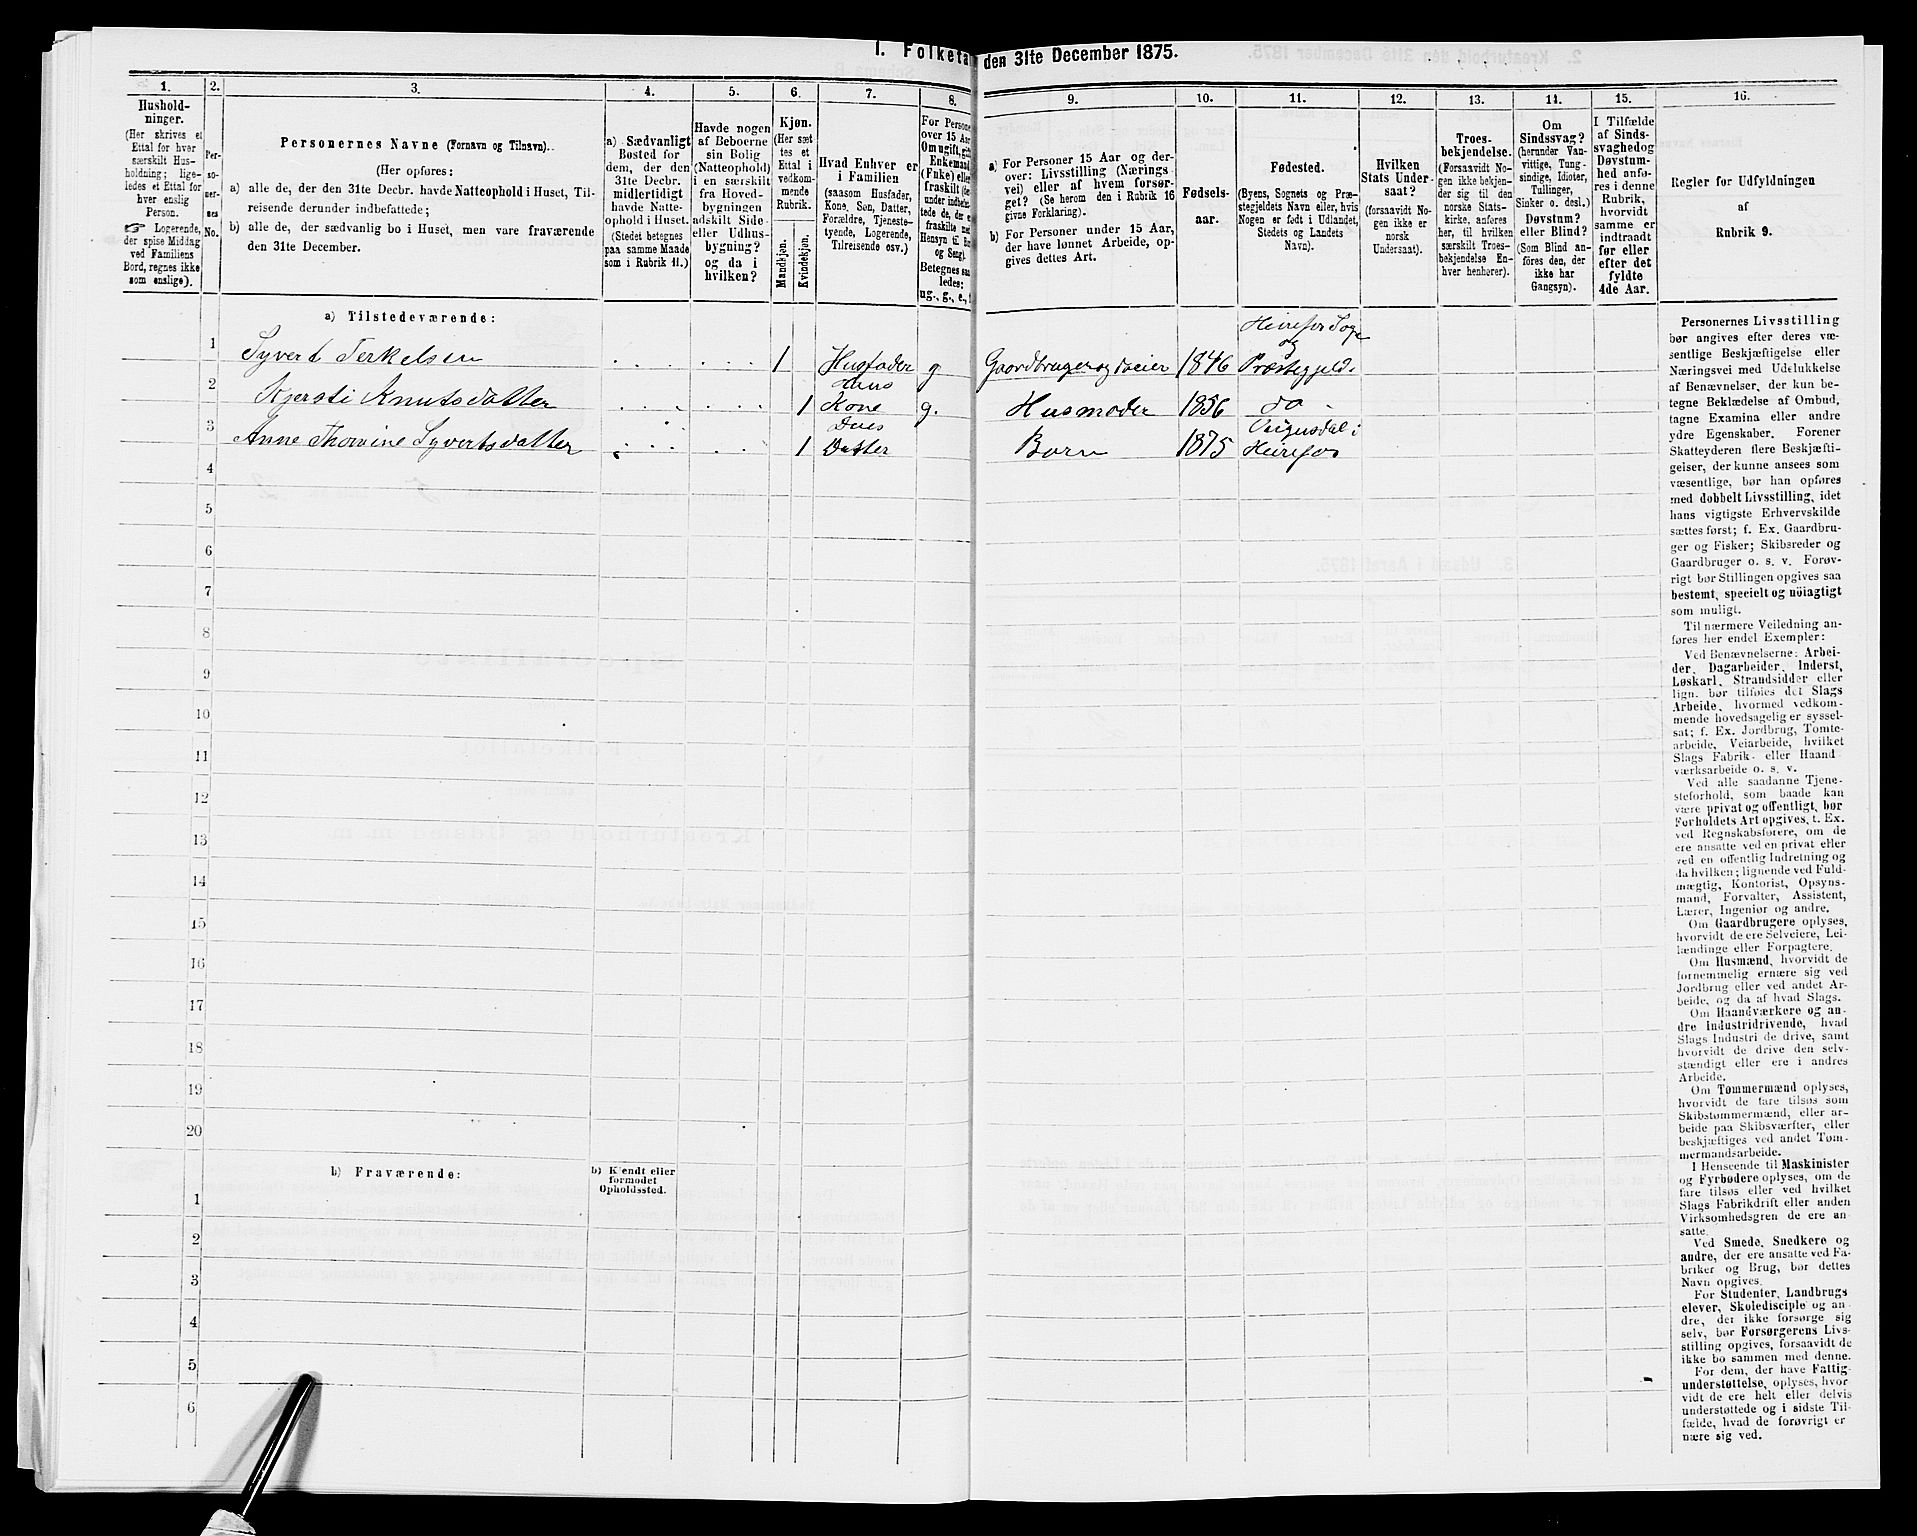 1. Folketæ
den 31te December 1875.
1.
Hushold-
ninger.
(Her skrives et
Ettal for hver
særskilt Hus-
holdning; lige-
ledes et Ettal for
hver enslig
Person.
☞ Logerende,
der spise Middag
ved Familiens
Bord, regnes ikke
som enslige).
2.
Per-
so-
ner-
nes
No.
3.
Personernes Navne (Fornavn og Tilnavn).
(Her opføres:
a) alle de, der den 31te Decbr. havde Natteophold i Huset, Til-
reisende derunder indbefattede;
b) alle de, der sædvanlig bo i Huset, men vare fraværende
den 31te December.
4.
a) Sædvanligt
Bosted for
dem, der den
31te Decbr.
midlertidigt
havde Natte-
ophold i Huset.
(Stedet betegnes
paa samme Maade
som i Rubrik 11.)
5.
Havde nogen
af Beboerne
sin Bolig
(Natteophold)
i en særskilt
fra Hoved-
bygningen
adskilt Side-
eller Udhus-
bygning?
og da i
hvilken?
6.
Kjøn.
(Her sæt
tes et
Ettal i
vedkom-
mende
Rubrik.
Mandkjøn.
Kvindekjøn.
7.
Hvad Enhver er
i Familien
(saasom Husfader,
Kone, Søn, Datter,
Forældre, Tjeneste-
tyende, Logerende,
Tilreisende osv.)
8.
For Persone
over 15 Aar
Om ugift, gift
Enkemand
(Enke) eller
fraskilt
Hensyn til Bo
og Seng).
Betegnes saa
ledes:
ug., g., e.,
9.
a) For Personer 15 Aar og der-
over: Livsstilling (Nærings
vei) eller af hvem forsør-
get? (Se herom den i Rubrik 16
givne Forklaring).
b) For Personer under 15 Aar,
der have lønnet Arbeide, op-
gives dettes Art.
10.
Fødsels-
aar.
11.
Fødested.
(Byens, Sognets og Præ-
stegjeldets Navn eller, hvis
Nogen er født i Udlandet,
Stedets og Landets
Navn).
12.
Hvilken
Stats Under-
saat?
(forsaavidt No-
gen ikke er
norsk
Undersaat).
13.
Troes-
bekjendelse.
(Forsaavidt No-
gen ikke bekjen-
der sig til den
norske Stats-
kirke, anføres
her, til hvilken
særskilt Troes-
bekjendelse En-
hver henhører).
14.
Om
Sindssvag?
(herunder Van-
vittige, Tung-
sindige, Idioter,
Tullinger,
Sinker o. desl.)
Døvstum?
eller Blind?
(Som Blind an-
føres den, der
ikke har
Gangsyn).
15.
I Tilfælde
af Sinds-
svaghed og
Døvstum-
hed anfø-
res i denne
Rubrik,
hvorvidt
samme er
indtraadt
før eller
efter det
fyldte
4de Aar.
16.
Regler for Udfyldningen
af
Rubrik 9.
a) Tilstedeværende:
Heirefos Sogn
og
1 Syvert Terkelsen 1 Husfader g Gaardbruger og Seleier 1846 Præstegjeld.
Hans
2 Kjersti Knutsdatter 1 Kone g. Husmoder 1856 do
Deres
3 Anne Thomine Syvertsdatter 1 Datter Barn 1875 Heirefos
4
5
6
7
8
9
10
11
12
13
14
15
16
17
18
19
20
b) Fraværende:
b) Kjendt eller
formodet
Opholdssted.
1
2
3
4
5
6
Personernes Livsstilling
bør angives efter deres væ-
sentlige Beskjæftigelse eller
Næringsvei med Udelukkelse
af Benævnelser, der kun be-
tegne Beklædelse af Ombud,
tagne Examina eller andre
ydre Egenskaber. Forener
Skatteyderen flere Beskjæfti-
gelser, der kunne ansees som
væsentlige, bør han opføres
med dobbelt Livsstilling, idet
hans vigtigste Erhvervskilde
sættes først; f. Ex. Gaardbru-
ger og Fisker; Skibsreder og
Gaardbruger o. s. v. Forøv-
rigt bør Stillingen opgives saa
bestemt, specielt og nøiagtigt
som muligt.
Til nærmere Veiledning an-
føres her endel Exempler:
Ved Benævnelserne: Arbei-
der, Dagarbeider, Inderst,
Løskarl, Strandsidder eller
lign. bør tilføies det Slags
Arbeide, hvormed vedkom-
mende hovedsagelig er syssel-
sat; f. Ex. Jordbrug, Tomte-
arbeide, Veiarbeide, hvilket
Slags Fabrik- eller Haand
værksarbeide o. s. v.
Ved alle saadanne Tjene-
steforhold, som baade kan
være privat og offentligt, bør
Forholdets Art opgives, f. Ex.
ved Regnskabsførere, om de
ere ansatte ved en privat eller
ved en offentlig Indretning og
da hvilken; lignende ved Fuld-
mægtig, Kontorist, Opsyns-
mand, Forvalter, Assistent,
Lærer, Ingeniør og andre.
Om Gaardbrugere oplyses,
hvorvidt de ere Selveiere, Lei-
lændinge eller Forpagtere.
Om Husmænd, hvorvidt de
fornemmelig ernære sig ved
Jordbrug eller ved andet Ar-
beide, og da af hvad Slags.
Om Haandværkere og an-
dre Industridrivende, hvad
Slags Industri de drive, samt
hvorvidt de drive den selv-
stændigt eller ere i andres
Arbeide.
Om Tømmermænd oplyses,
hvorvidt de fare tilsøs som
Skibstømmermænd, eller ar-
beide paa Skibsværfter, eller
beskjæftiges ved andet Tøm-
mermandsarbeide.
I Henseende til Maskinister
og Fyrbødere oplyses, om de
fare tilsøs eller ved hvilket
Slags Fabrikdrift eller anden
Virksomhedsgren de ere an-
satte.
Ved Smede, Snedkere og
andre, der ere ansatte ved Fa-
briker og Brug, bør dettes
Navn opgives.
For Studenter, Landbrugs
elever, Skoledisciple og an-
dre, der ikke forsørge sig
selv, bør Forsørgerens Livs-
stilling opgives, forsaavidt de
ikke bo sammen med denne.
For dem, der have Fattig-
understøttelse, oplyses, hvor-
vidt de ere helt eller delvis
understøttede og i sidste Til-
fælde, hvad de forøvrigt er
nære sig ved.